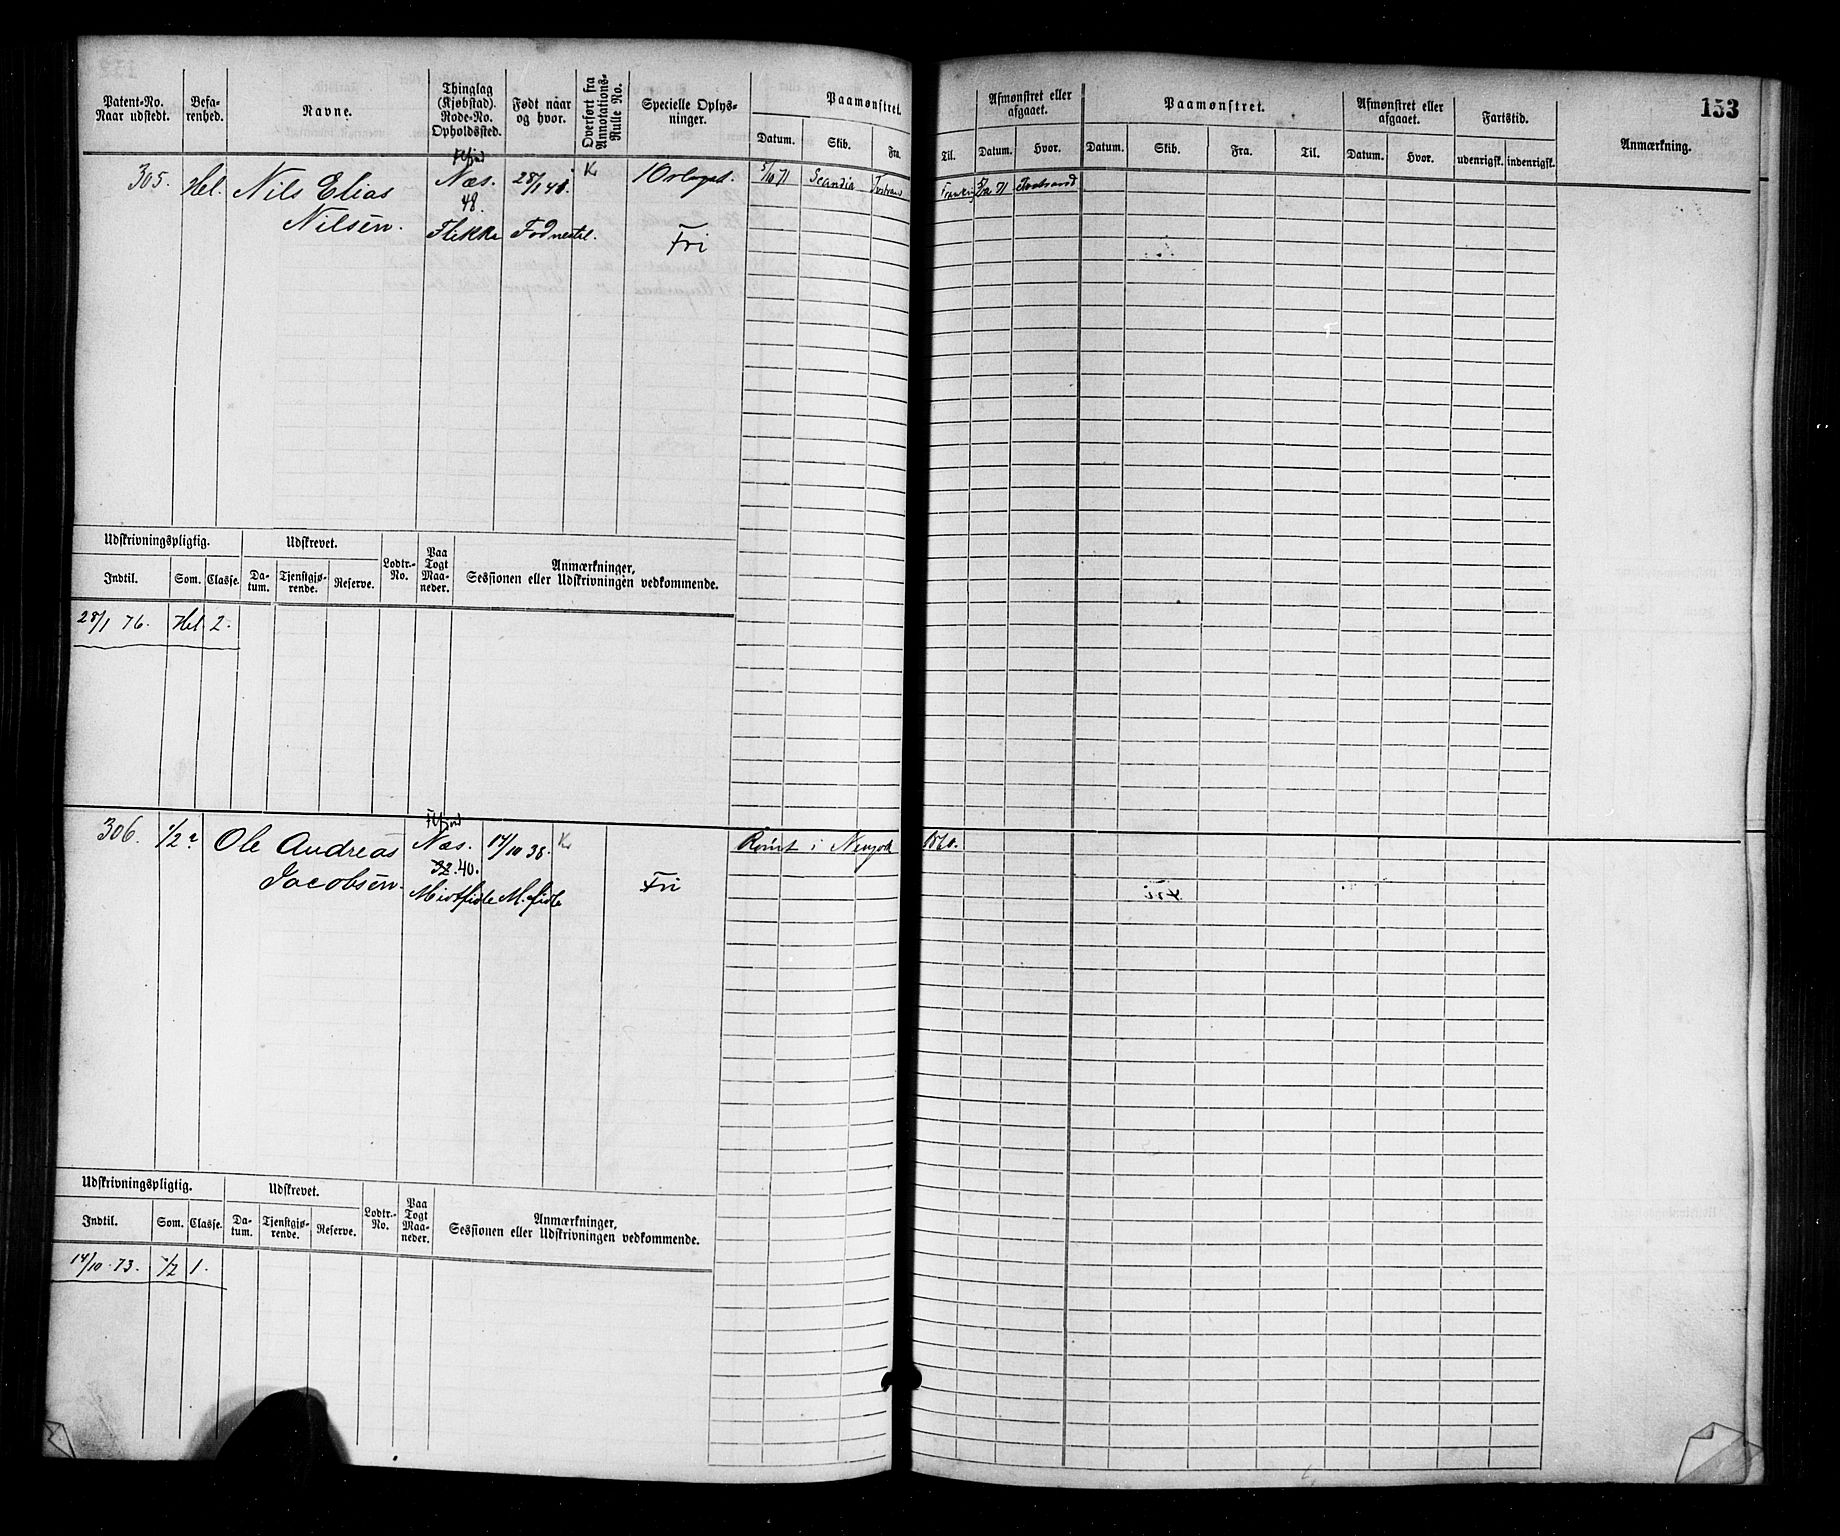 153
Patent-No. Naar udstedt.
Befarenhed.
Navne.
Thinglag (Kjøbstad). Rode-No. Opholdssted.
Født naar og hvor.
Overført fra Annotations-Rulle No.
Specielle Oplysninger.
Paamønstret.
Datum. Skib. Fra. Til.
Afmønstret eller afgaaet.
Datum. Hvor.
Paamønstret.
Datum. Skib. Fra. Til.
Afmønstret eller afgaaet.
Datum. Hvor.
Fartstid.
udenrigsk. indenrigsk.
Anmærkning.
305. Hel. Nils Elias Næs. 28/1 48. K 1 Orlogst. 5/10 71 Scandia
48.
Nilsen. Flekke Fodnestil.
Fri
Udskrivningspligtig. Udskrevet. Lodtr.-No. Paa Togt Maaneder. Anmærkninger, Sessionen eller Udskrivningen vedkommende.
Indtil. Som. Classe. Datum. Tjenstgjørende. Reserve.
28/1 76. Hel 2.
306. 1/2 Ole Andreas Næs. 14/10 38. K Rømt i Newyork 1860.
32. 40.
Jacobsen. Fri
Udskrivningspligtig. Udskrevet. Lodtr.-No. Paa Togt Maaneder. Anmærkninger, Sessionen eller Udskrivningen vedkommende.
Indtil. Som. Classe. Datum. Tjenstgjørende. Reserve.
14/10 73. 1/2 1.